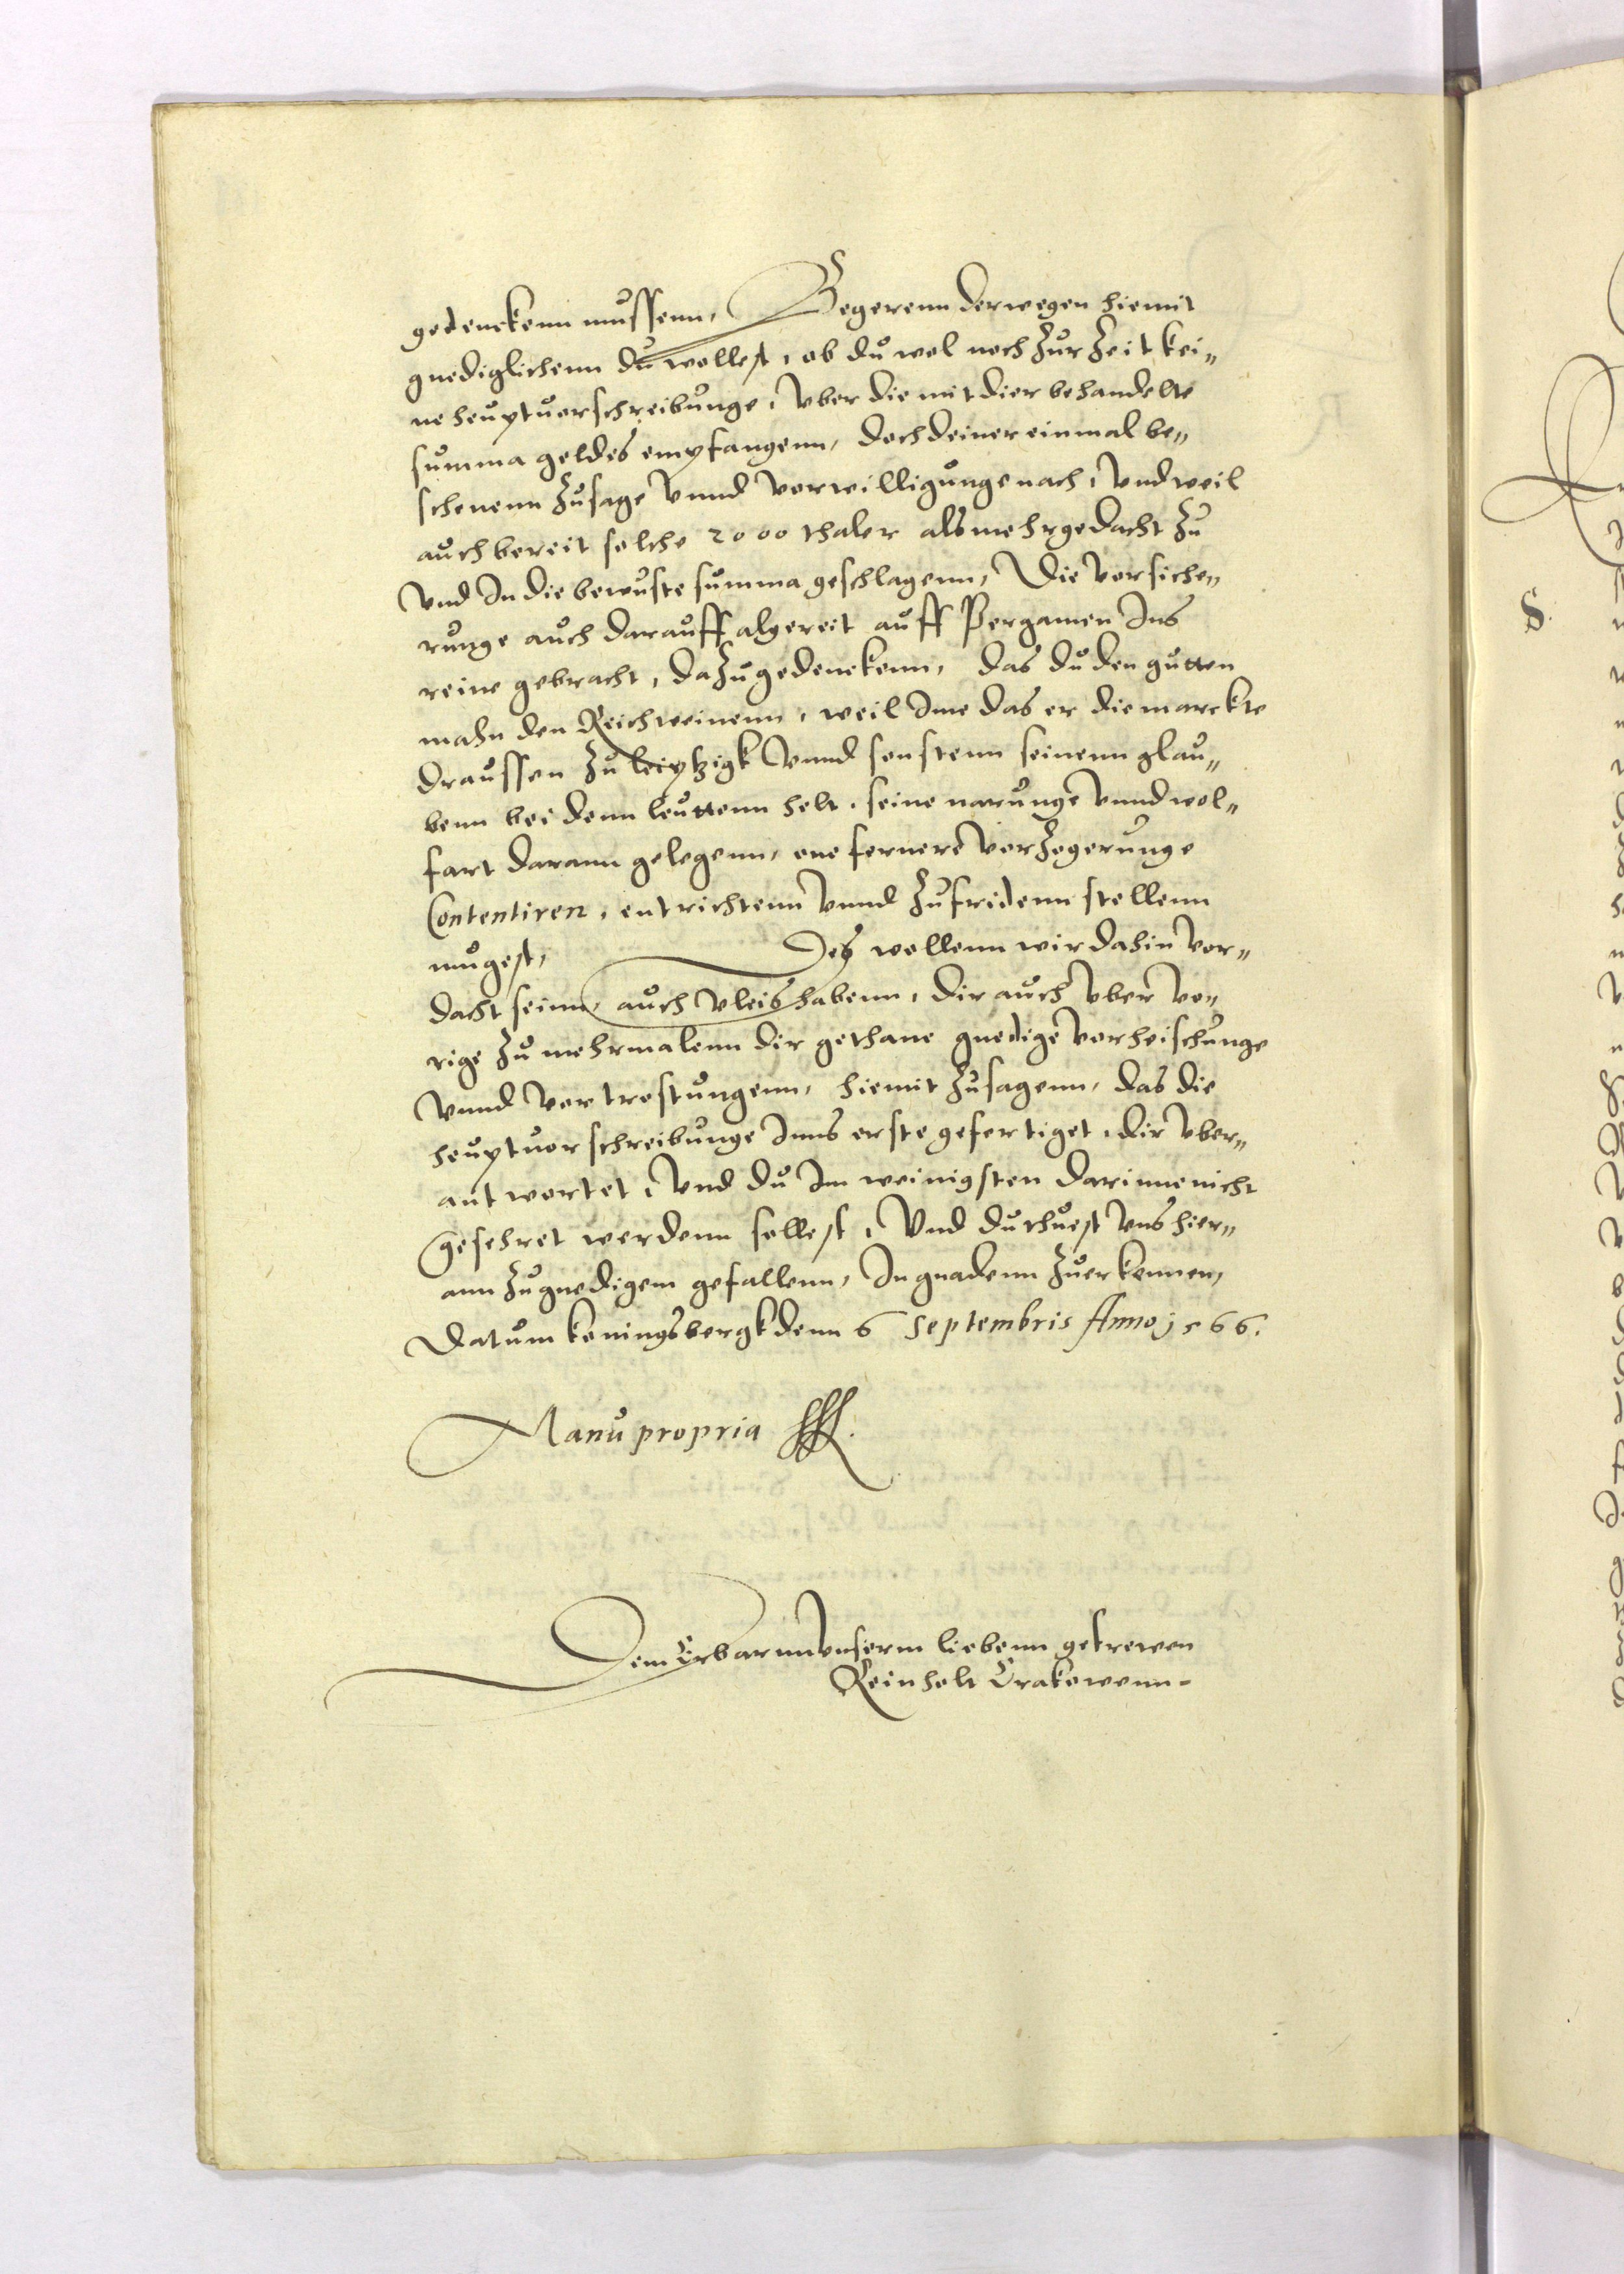 gedenckenn mussenn, Begerenn derwegen hiemit
gnediglichenn du wollest, ob du wol noch zur Zeit kei„
ne heuptuorschreibunge, vber die mit dier behandelte
summa geldes empfangenn, doch deiner einmal be„
schenenn Zusage vnnd vorwilligunge nach, vnd weil
auch bereit solche 2000 thaler als mehrgedacht zu
vnd In die bewuste summa geschlagenn, Die vorsiche„
runge auch darauff algereit auff Pergamen Ins
reine gebracht, dazugedenckenn, das du den gutten
mahn den Reichweinenn, weil Ime das er die marckte
draussen zu leiptzigk vnnd sonstenn seinenn glau„
benn bei denn leuttenn helt, seine narunge vnnd wol„
fart darann gelegenn, one fernere vorzogerunge
Contentiren, entrichtenn vnnd zufridenn stellenn
mugest, Des wollenn wir dahin vor„
dacht seinn, auch vleis habenn, dir auch vber vo„
rige zu mehrmalenn dir gethane gnedige vorheischunge
vnnd vortrostungenn, hiemit zusagenn, das die
heuptuorschreibunge Inns erste gefertiget, dir vber„
antwortet, vnd du Im weinigsten darinne nicht
gefehret werdenn sollest, Vnd du thuest vns hier„
ann zu gnedigem gefallenn, In gnadenn zuerkennen,
Datum koningsbergk denn 6 Septembris Anno j566.
Manu propria
Dem Erbarnn vnserm liebenn getrewen
Reinholt Crakowenn-
S.